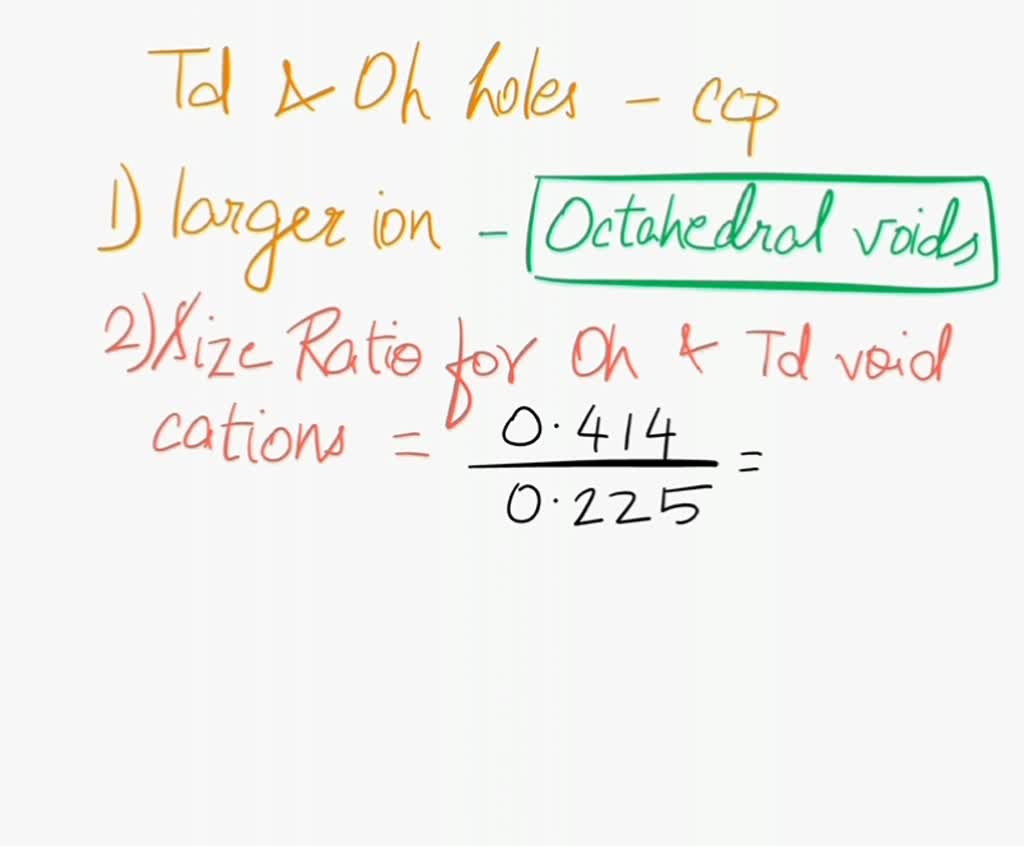 Td & Oh holes - ccp
1) larger ion - Octahedral voids
2) Size Ratio for Oh & Td void
cations = 0.414
0.225 =